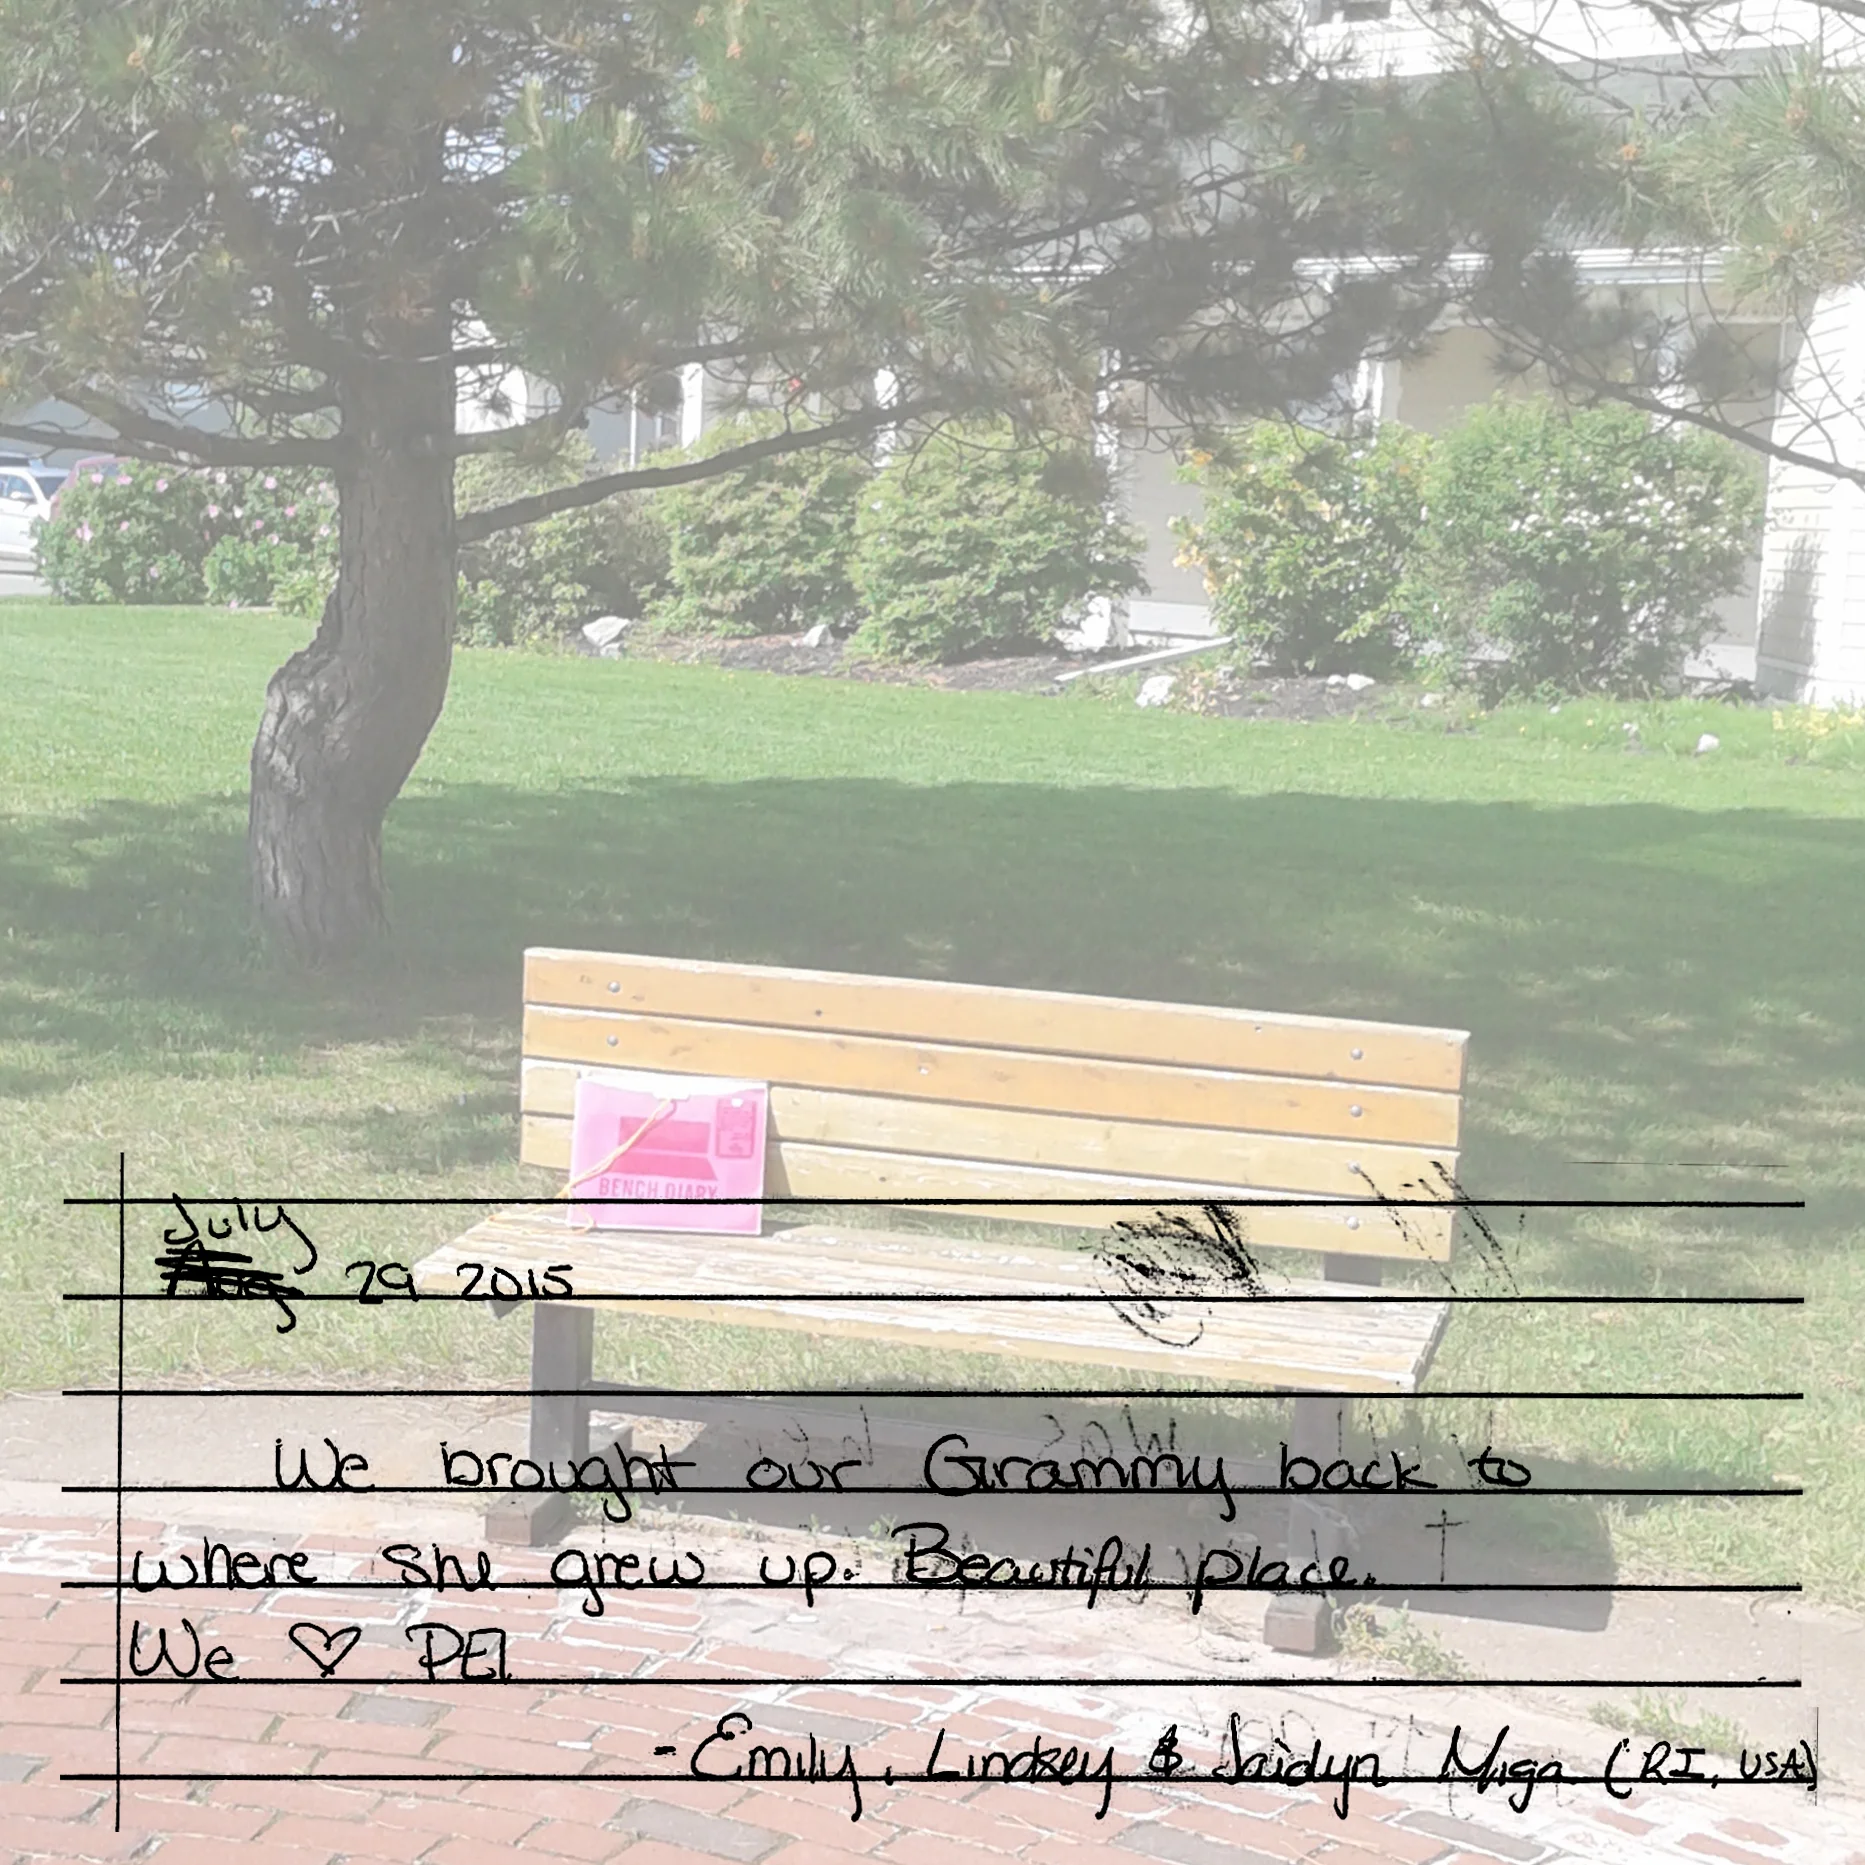 BENCH DIARY
July
Aug 29 2015
We brought our Grammy back to
where she grew up. Beautiful place.
We ♡ PEI
-Emily, Lindsey & Jaidyn Miga (RI, USA)